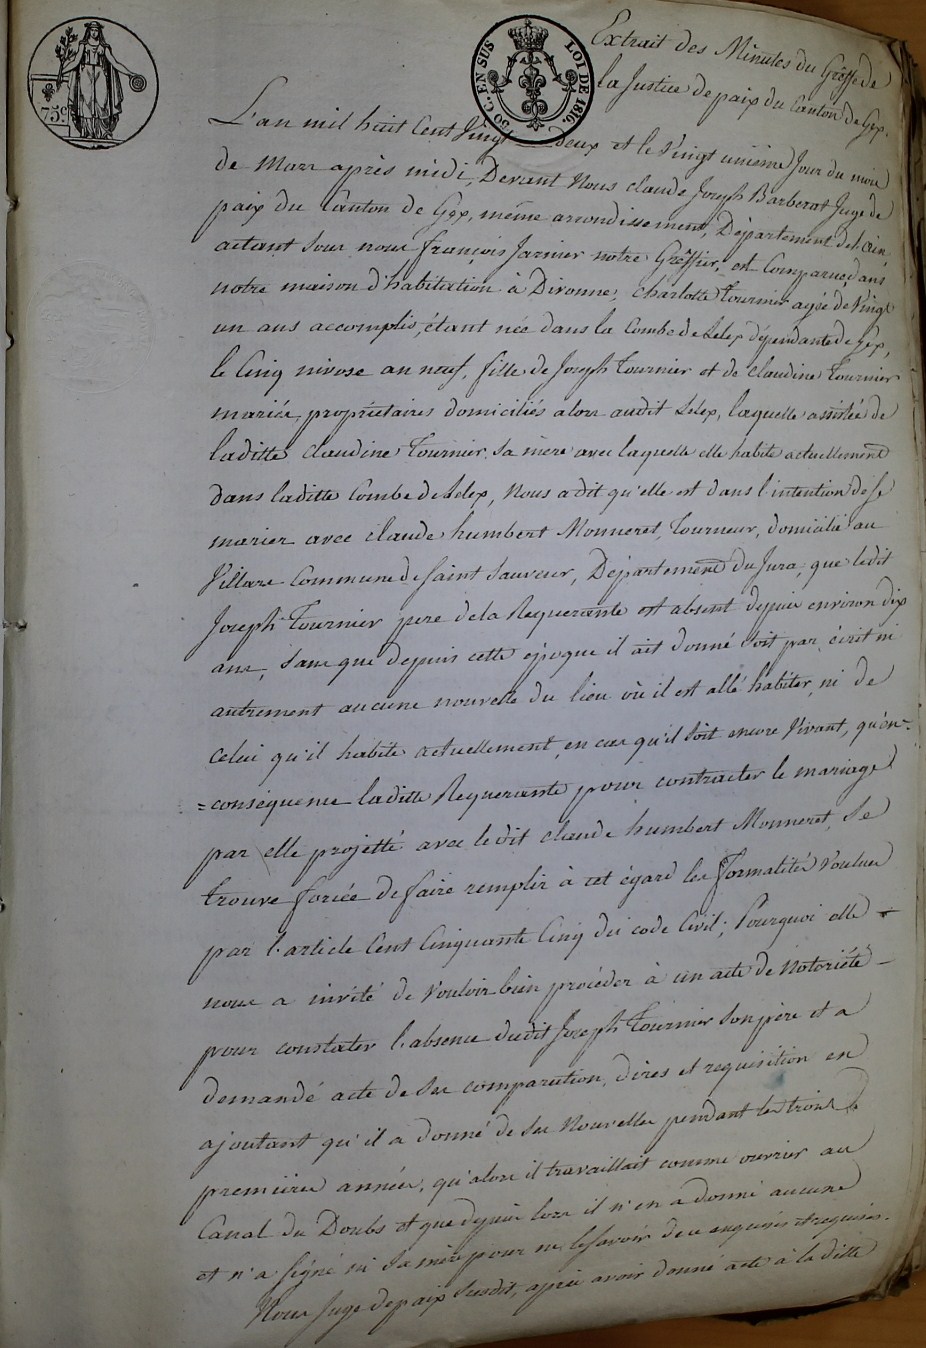 Extrait des Minutes du Greffe de
la Justice de paix du Canton de Gex.
75c
50c. EN SUS LOI DE 1816.
L'an mil huit Cent Vingt deux et le Vingt unième Jour du mois
de Mars après midi, Devant Nous claude Joseph Barberat Juge de
paix du Canton de Gex, même arrondissement, Département de l'ain
actant sous nous françois Jarnier notre Greffier, est Comparue, dans
notre maison d'habitation à Divonne, Charlotte Tournier agée de Vingt
un ans accomplis, étant née dans la Combe de Lelex dépendante de gex,
le Cinq nivose an neuf, fille de Joseph Tournier et de claudine Tournier
mariés, propriétaires domiciliés alors audit Lelex, laquelle assistée de
laditte Claudine Tournier sa mère avec laquelle elle habite actuellement
dans laditte Combe de Lelex, Nous a dit qu'elle est dans l'intention de se
marier avec claude humbert Monneret, Tourneur, domicilié au
Villars Commune de Saint Sauveur, Département du Jura, que ledit
Joseph Tournier pere de la Requerante est absent depuis environ dix
ans, sans que depuis cette époque il ait donné soit par écrit ni
autrement aucune nouvelle du lieu où il est allé habiter, ni de
celui qu'il habite actuellement, en cas qu'il soit encore Vivant, qu'en=
=conséquence laditte Requerante pour contracter le mariage
par elle projetté avec ledit claude humbert Monneret, Se
trouve forcée de faire remplir à cet égard les formalités Voulues
par l'article Cent Cinquante Cinq du code Civil; Pourquoi elle
nous a invité de Vouloir bien procéder à un acte de Notoriété
pour constater l'absence dudit Joseph Tournier Son père et a
demandé acte de Ses comparution, dires et requisition en
ajoutant qu'il a donné de Ses Nouvelles pendant les trois
premieres années, qu'alors il travaillait comme ouvrier au
Canal du Doubs et que depuis lors il n'en a donné aucune
et n'a signé ni Sa mère pour ne le savoir de ce enquises et requises.
Nous Juge de paix Susdit, après avoir donné acte à laditte